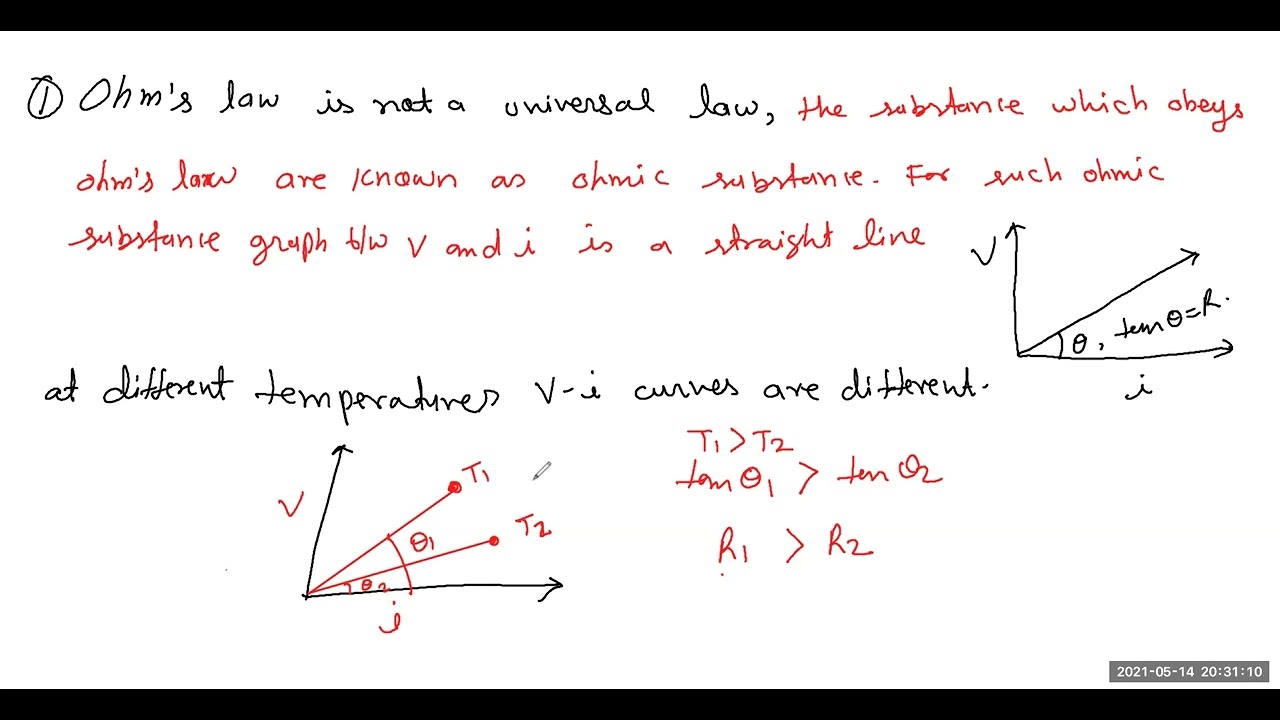 ① Ohm's law is not a universal law, the substance which obeys
ohm's law are known as ohmic substance. For such ohmic
substance graph b/w V and i is a straight line
V
θ, tanθ=R.
i
at different temperatures V-i curves are different.
T1>T2
tanθ1 > tanθ2
R1 > R2
V
T1
T2
θ1
θ2
i
2021-05-14 20:31:10